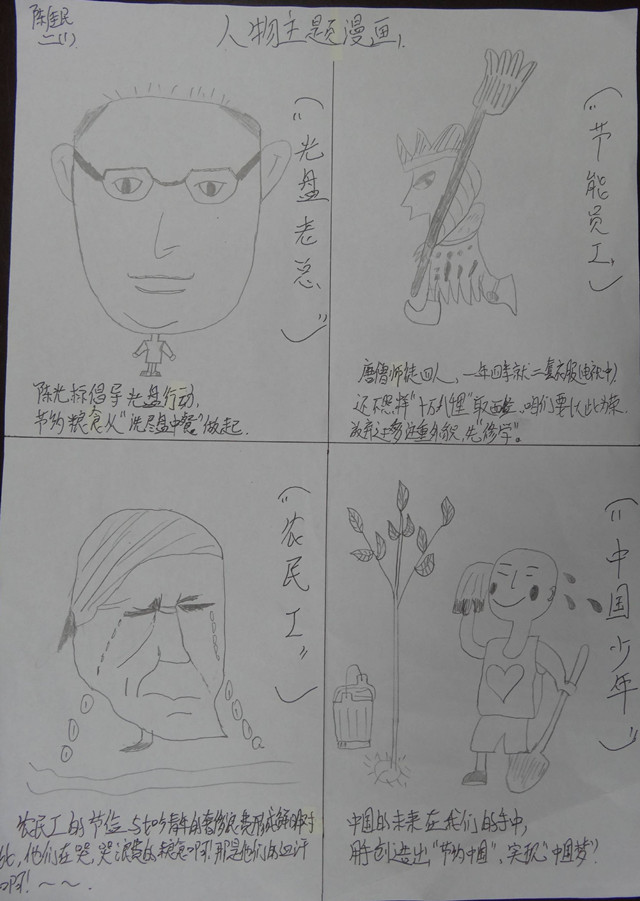 陈佳民
二(1)
人物主题漫画
("光盘老总")
陈光标倡导光盘行动,
节约粮食从"洗尽盘中餐"做起.
("节能员工")
唐僧师徒四人,一年四季就二套衣服(电视中)
还不照样"十万八千里"取西经,咱们要以此为荣.
("农民工")
农民工的节俭与如今青年的奢侈浪费形成鲜明对
比,他们在哭,哭浪费的粮食啊!那是他们的血汗
啊!~~.
("中国少年")
中国的未来在我们的手中,
创造出"节约中国",实现"中国梦"!